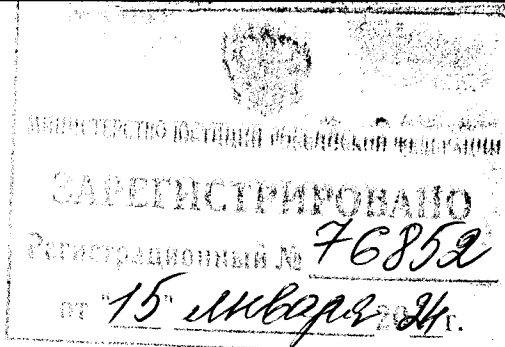 МИНИСТЕРСТВО ЮСТИЦИИ РОССИЙСКОЙ ФЕДЕРАЦИИ
ЗАРЕГИСТРИРОВАНО
Регистрационный № 76852
от "15" января 2024 г.